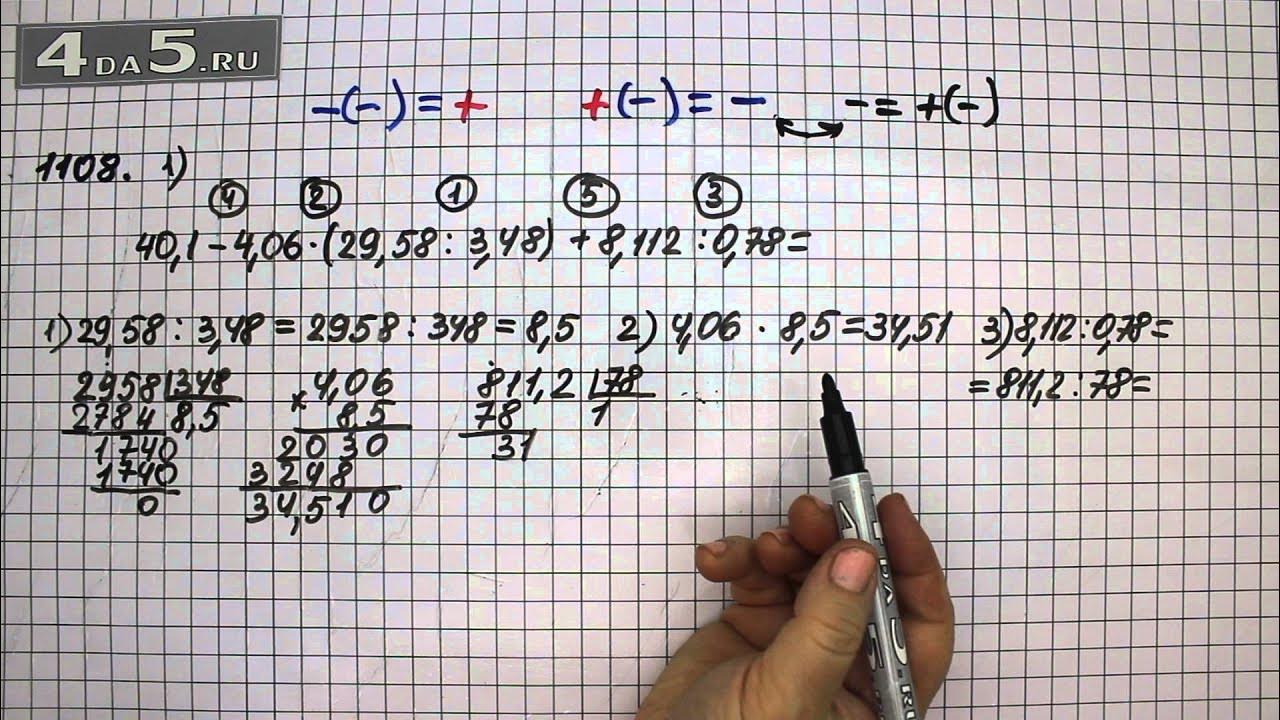 4DA5.RU
-(-) = + +(-) = - - = +(-)
1108. 1)
4 2 1 5 3
40,1 - 4,06 · (29,58 : 3,48) + 8,112 : 0,78 =
1) 29,58 : 3,48 = 2958 : 348 = 8,5 2) 4,06 · 8,5 = 34,51 3) 8,112 : 0,78 =
= 811,2 : 78 =
2958 348
2784 8,5
1740
1740
0
× 4,06
8,5
2030
3248
34,510
811,2 78
78 1
31